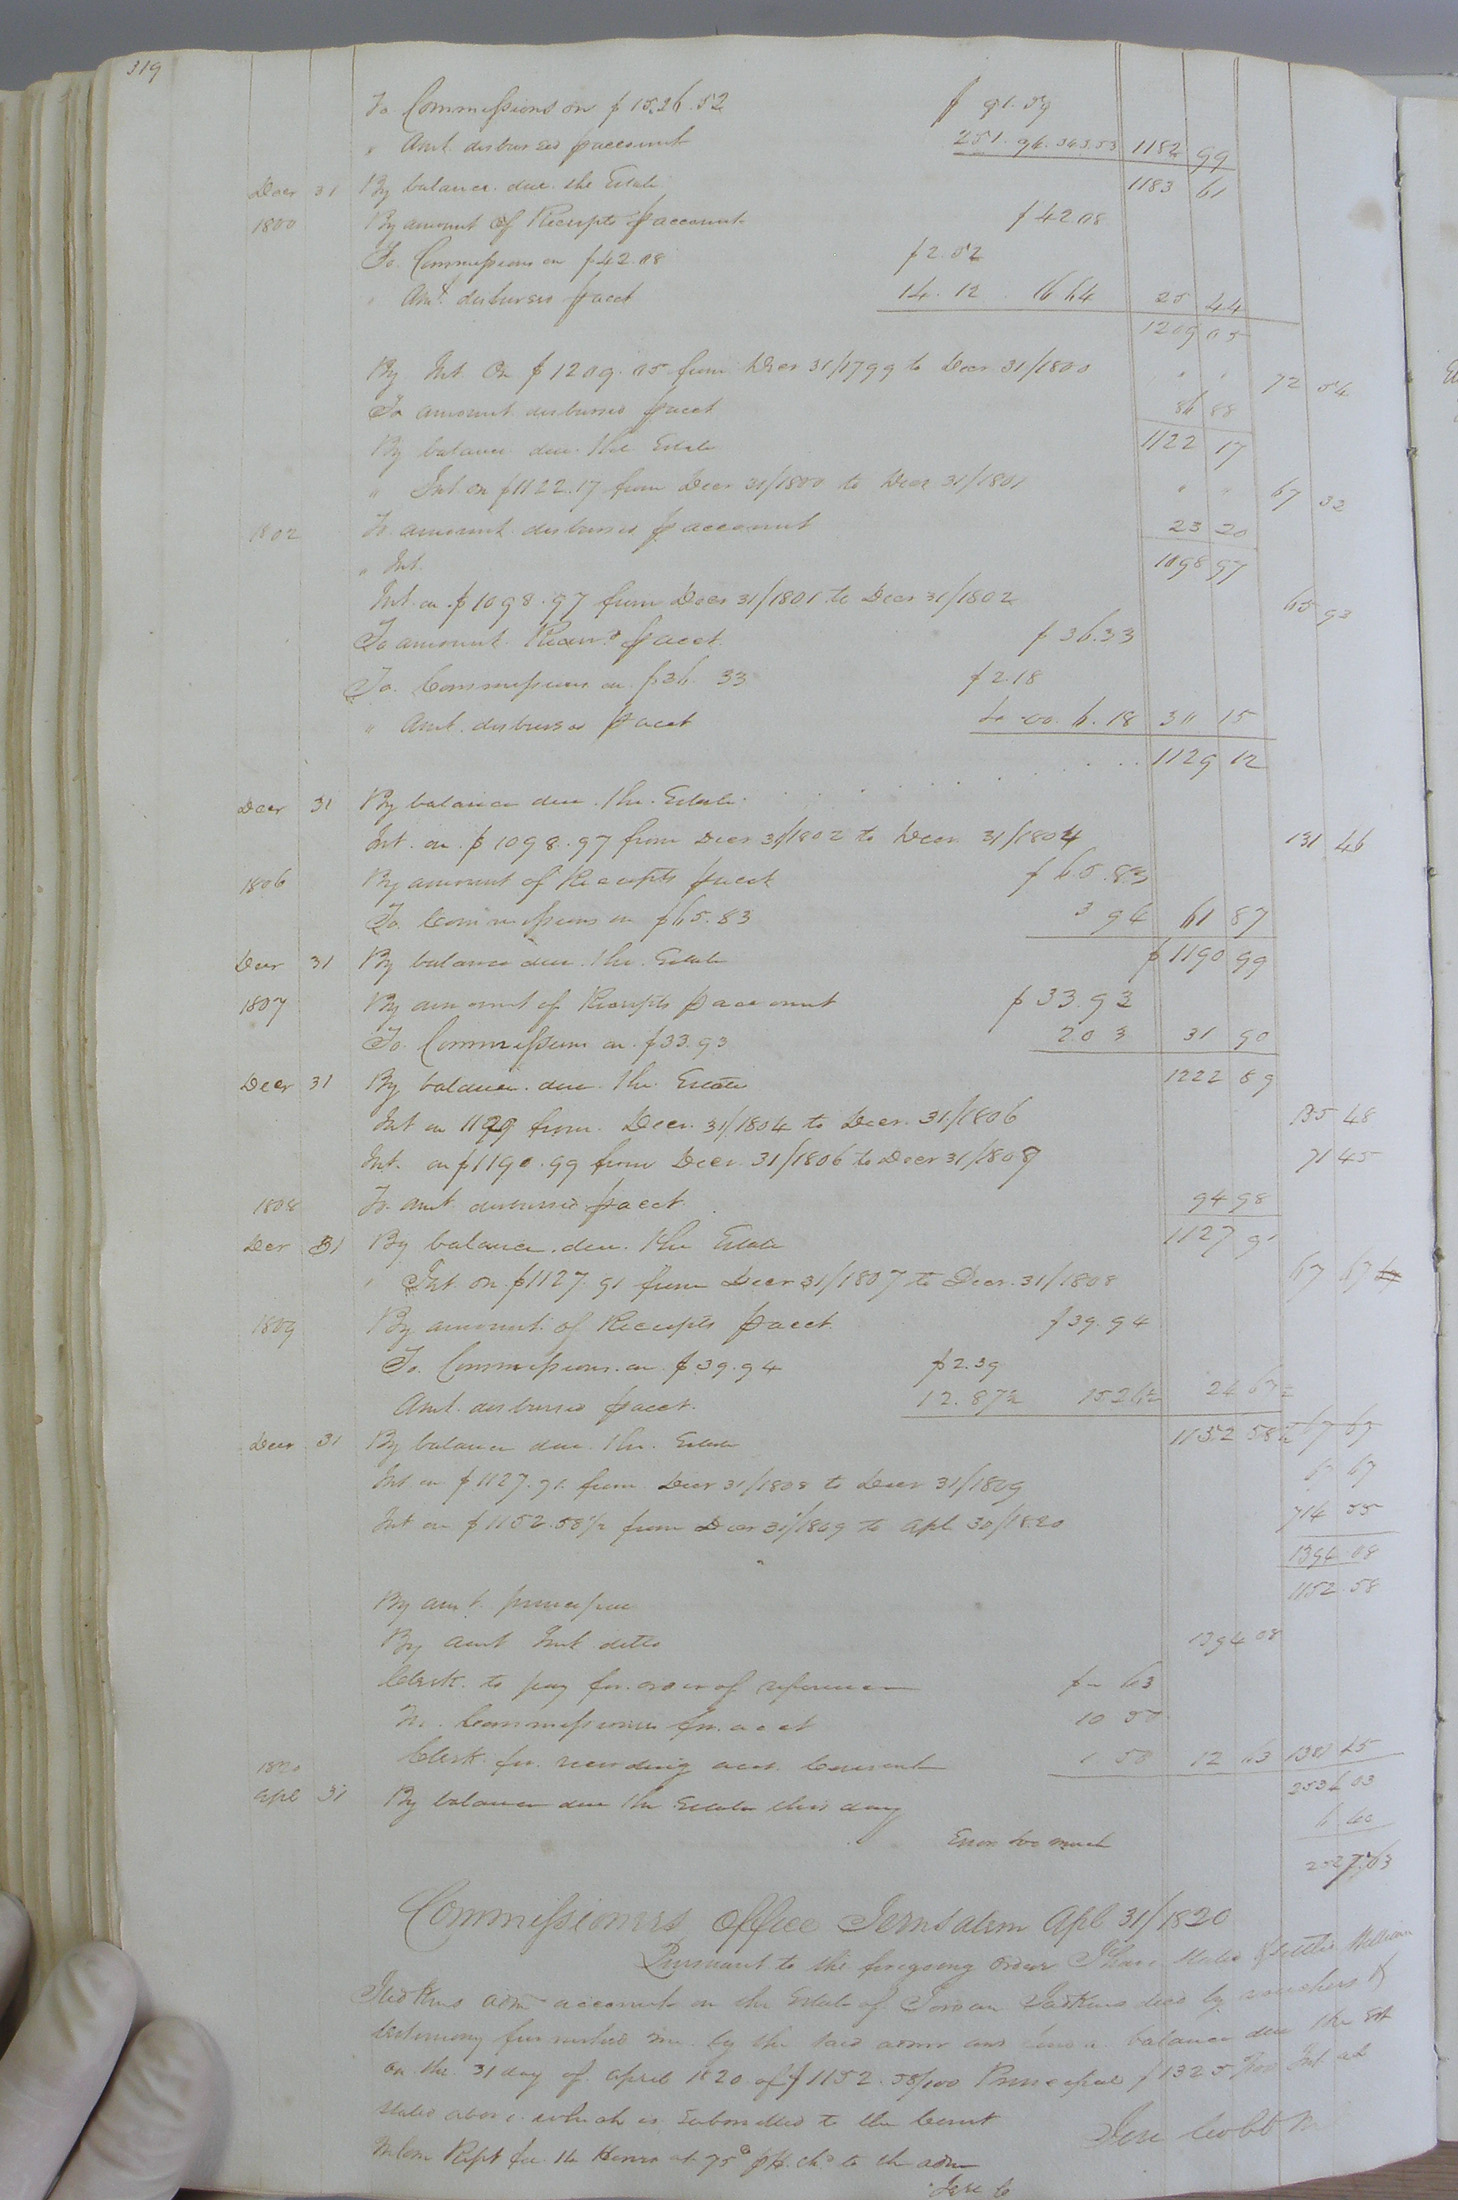 319
To Commissions on $1526.52 $ 91.59
" Amt. disbursed p account 251.94. 343.53 1182 99
Decr 31 By balance due the Estate 1183 61
1800 By amount of Receipts p account $42.08
To Commissions on $42.08 $2.52
" Amt. disbursed p acct 14.12 16 64 25 44
1209 05
By Int. On $1209.05 from Decr 31/1799 to Decr 31/1800 " " 72 54
To amount disbursed p acct 86 88
By balance due the Estate 1122 17
" Int on $1122.17 from Decr 31/1800 to Decr 31/1801 " " 67 32
1802 To amount disbursed p account 23 20
" Int. 1098 97
Int. on $1098.97 from Decr 31/1801 to Decr 31/1802 65 93
To amount Recev.d p acct. $36.33
To Commissions on $36. 33 $2.18
" Amt. disbursed p acct 4.00. 6.18 30 15
1129 12
Decr 31 By balance due the Estate
Int. on $1098.97 from Decr 31/1802 to Decr 31/1804 131 46
1806 By amount of Receipts p acct $65.83
To Commissions on $65.83 3 94 61 87
Decr 31 By balance due the Estate $1190 99
1807 By amount of Receipts p account $33.93
To Commissions on $33.93 2 0 3 31 90
Decr 31 By balance due the Estate 1222 89
Int on 1129 from Decr. 31/1804 to Decr. 31/1806 135 48
Int. on $1190.99 from Decr. 31/1806 to Decr 31/1807 71 45
1808 To amt disbursed p acct 94 98
Decr 31 By balance due the Estate 1127 91
" Int. on $1127.91 from Decr 31/1807 to Decr. 31/1808 67 67
1809 By amount of Receipts p acct $39.94
To Commissions on $39.94 $2.39
Amt. disbursed p acct. 12.87½ 15 26½ 24 67½
Decr 31 By balance due the Estate 1152 58½ 67 67
Int on $1127.91 from Decr 31/1808 to Decr 31/1809 67 67
Int on $1152.58½ from Decr 31/1809 to Apl 30/1820 714 55
1394 08
1152 58
By amt. principal
By amt Int ditto 1394 08
Clerk to pay for order of reference $" 63
To Commissioner for acct 10 50
Clerk for recording acct Current 1 50 12 63 1381 45
1820
Apl 31 By balance due the Estate this day 2534 03
6 40
Error too much
2527.63
Commissioners Office Jerusalem Apl 31/1820
Pursuant to the foregoing order I have stated & settled William
Judkins adm account on the Estate of Jordan Judkins decd by vouchers &
testimony furnished me by the said admr and balance due the Est
on the 31 day of April 1820 of $1152.58/100 Principal $1325 Int as
stated above which is Submitted to the Court
Hours at 75 to the adm
Jere Cobb
Jere C